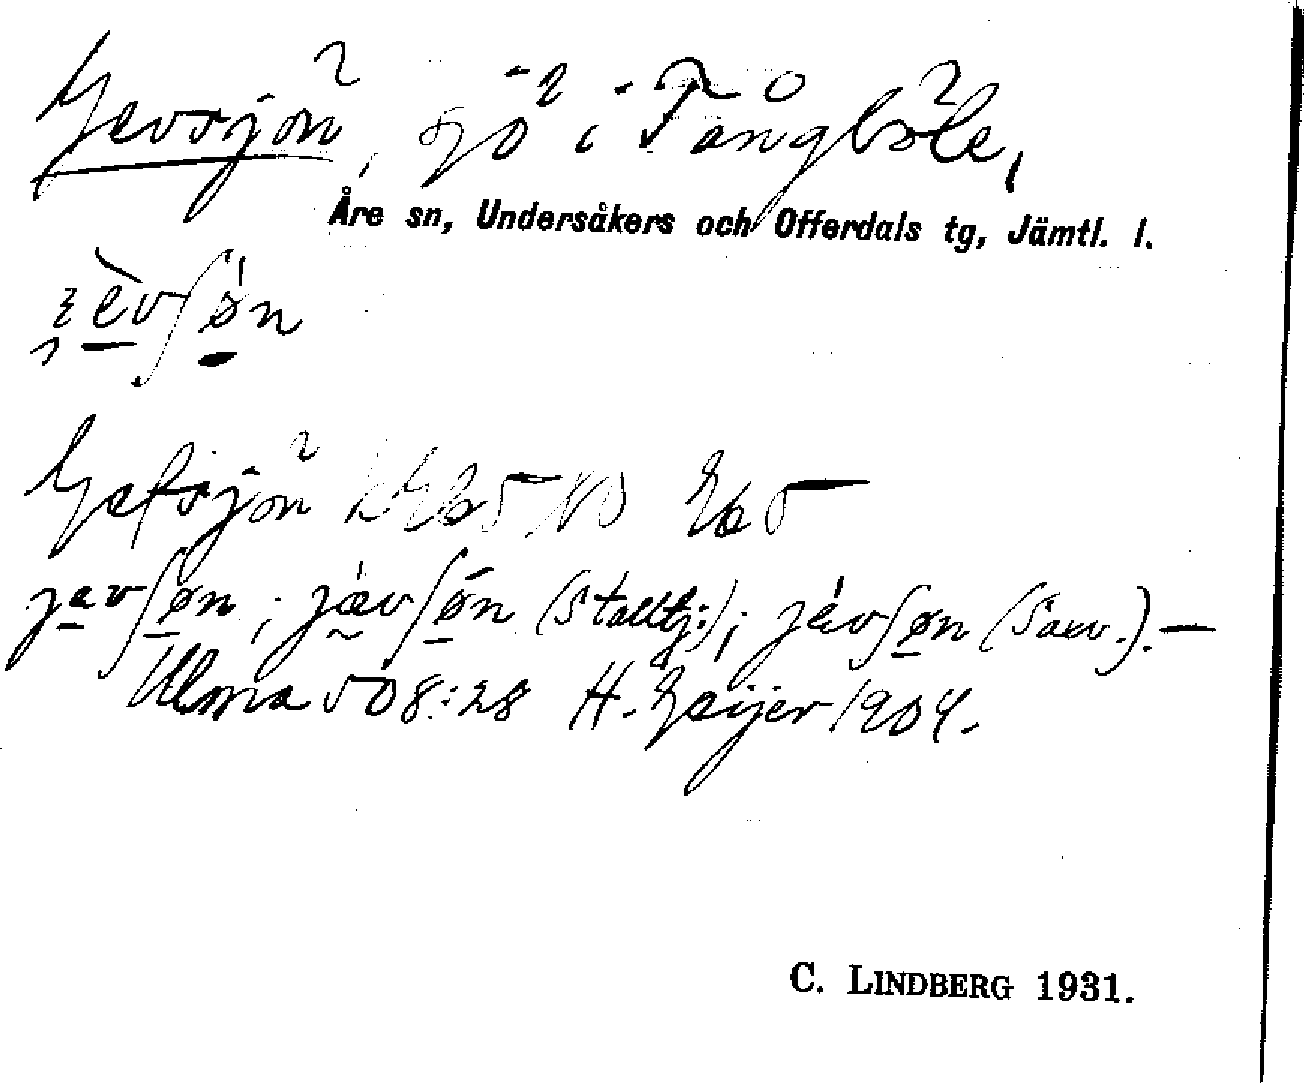 Gevsjön, sjö i Tångböle,
Åre sn, Undersåkers och Offerdals tg, Jämtl. l.
Gefsjön
jævʃøn; jævʃøn (Stalltj:); jévʃøn (Saev.).—
Ulma 508:28 H. Geijer 1904.
C. LINDBERG 1931.